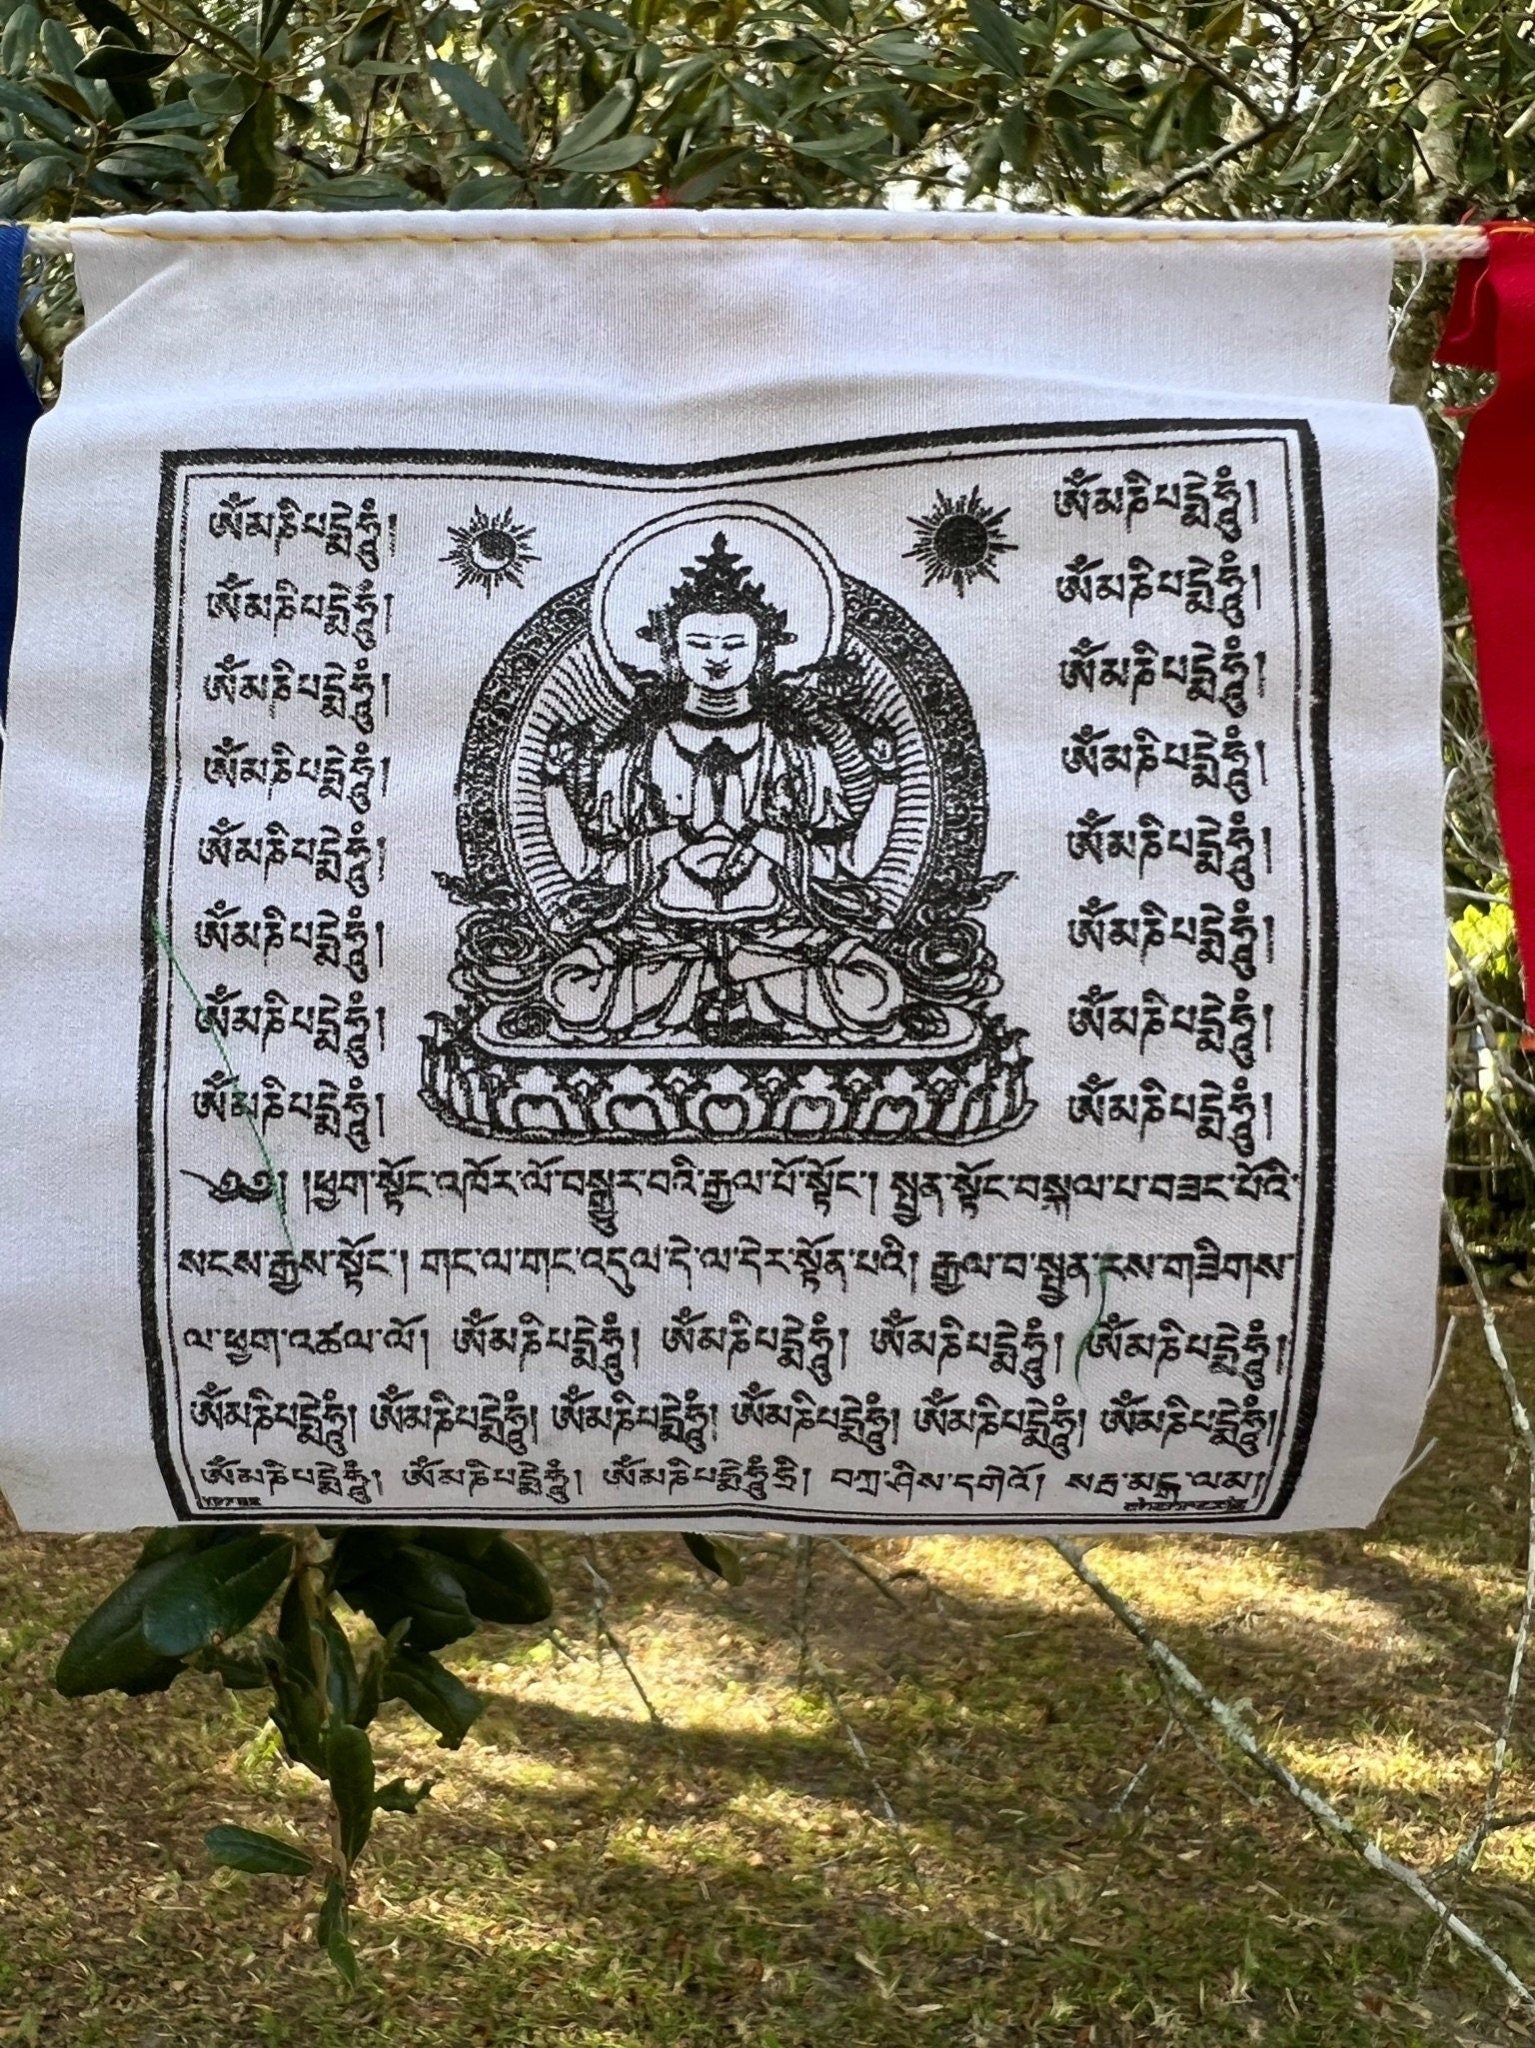 ༀམཎིཔདྨེཧཱུྃ། ༀམཎིཔདྨེཧཱུྃ།
ༀམཎིཔདྨེཧཱུྃ། ༀམཎིཔདྨེཧཱུྃ།
ༀམཎིཔདྨེཧཱུྃ། ༀམཎིཔདྨེཧཱུྃ།
ༀམཎིཔདྨེཧཱུྃ། ༀམཎིཔདྨེཧཱུྃ།
ༀམཎིཔདྨེཧཱུྃ། ༀམཎིཔདྨེཧཱུྃ།
ༀམཎིཔདྨེཧཱུྃ། ༀམཎིཔདྨེཧཱུྃ།
ༀམཎིཔདྨེཧཱུྃ། ༀམཎིཔདྨེཧཱུྃ།
ༀམཎིཔདྨེཧཱུྃ། ༀམཎིཔདྨེཧཱུྃ།
༄༅། །ཕྱག་སྟོང་འཁོར་ལོ་བསྒྱུར་བའི་རྒྱལ་པོ་སྟོང་། སྤྱན་སྟོང་བསྐལ་པ་བཟང་པོའི་
སངས་རྒྱས་སྟོང་། གང་ལ་གང་འདུལ་དེ་ལ་དེར་སྟོན་པའི། རྒྱལ་བ་སྤྱན་རས་གཟིགས་
ལ་ཕྱག་འཚལ་ལོ། ༀམཎིཔདྨེཧཱུྃ། ༀམཎིཔདྨེཧཱུྃ། ༀམཎིཔདྨེཧཱུྃ། ༀམཎིཔདྨེཧཱུྃ།
ༀམཎིཔདྨེཧཱུྃ། ༀམཎིཔདྨེཧཱུྃ། ༀམཎིཔདྨེཧཱུྃ། ༀམཎིཔདྨེཧཱུྃ། ༀམཎིཔདྨེཧཱུྃ། ༀམཎིཔདྨེཧཱུྃ།
ༀམཎིཔདྨེཧཱུྃ། ༀམཎིཔདྨེཧཱུྃ། ༀམཎིཔདྨེཧཱུྃཧྲི། བཀྲ་ཤིས་དགེའོ། སརྦ་མངྒ་ལམ།།
chenrezig